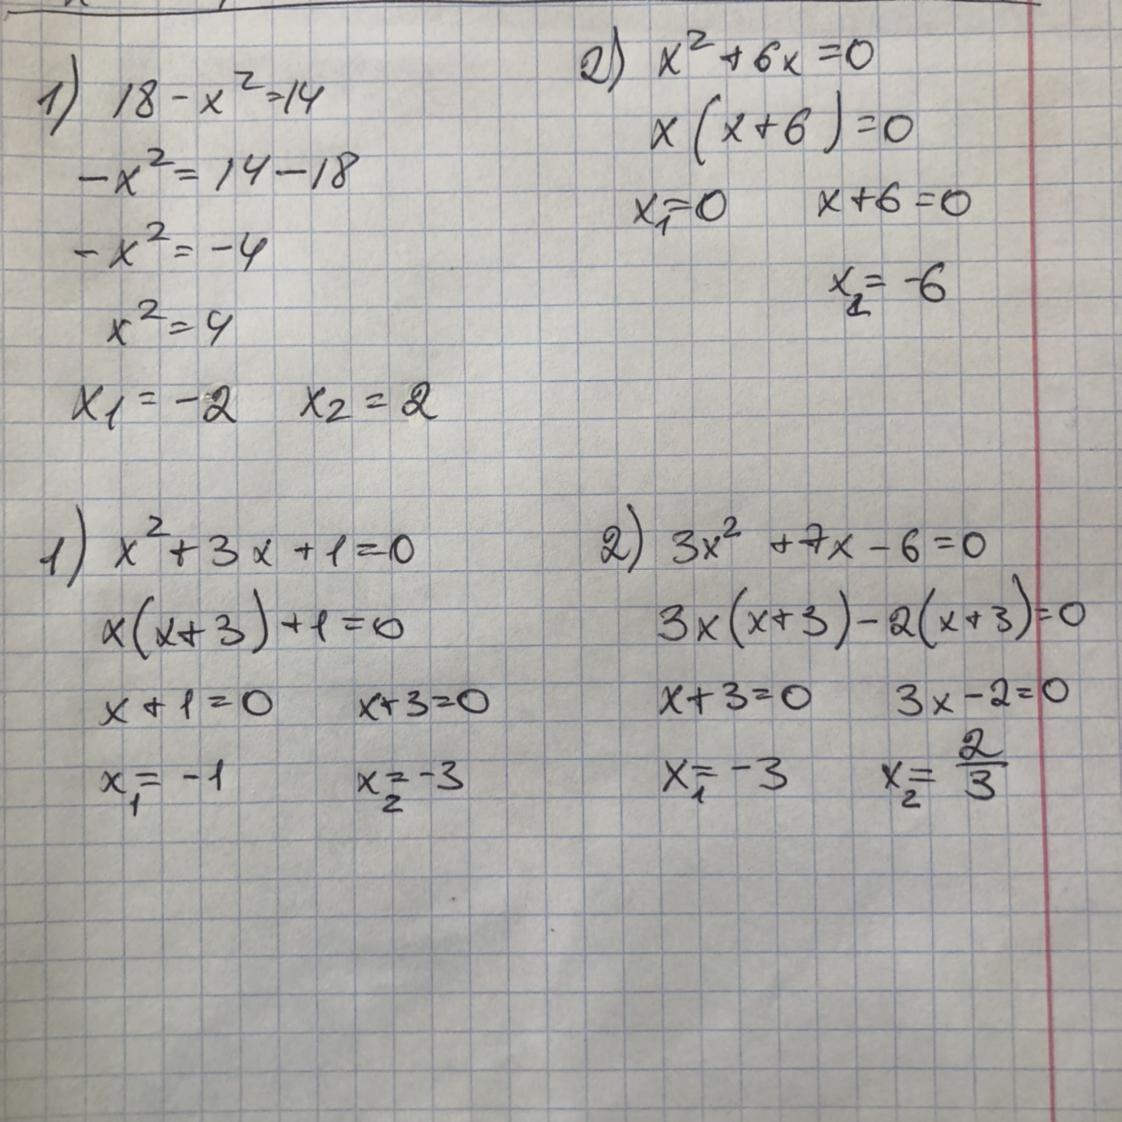 1) 18 - x² = 14
-x² = 14 - 18
-x² = -4
x² = 4
x₁ = -2 x₂ = 2
2) x² + 6x = 0
x(x+6) = 0
x₁ = 0 x+6 = 0
x₂ = -6
1) x² + 3x + 1 = 0
x(x+3) + 1 = 0
x + 1 = 0 x+3 = 0
x₁ = -1 x₂ = -3
2) 3x² + 7x - 6 = 0
3x(x+3) - 2(x+3) = 0
x+3 = 0 3x - 2 = 0
x₁ = -3 x₂ = 2/3